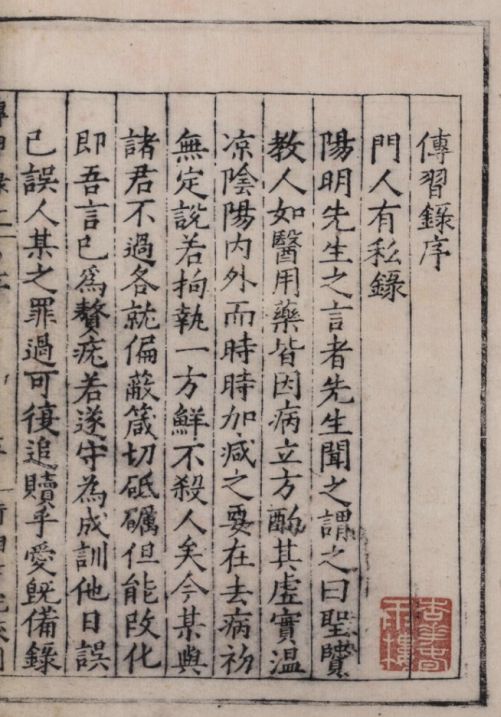 傳習錄序
門人有私錄
陽明先生之言者先生聞之謂之曰聖賢
教人如醫用藥皆因病立方酌其虛實溫
凉陰陽内外而時時加减之要在去病初
無定說若拘執一方鮮不殺人矣今某與
諸君不過各就偏蔽箴切砥礪但能改化
即吾言已爲贅疣若遂守為成訓他日誤
已誤人某之罪過可復追贖乎愛旣備錄